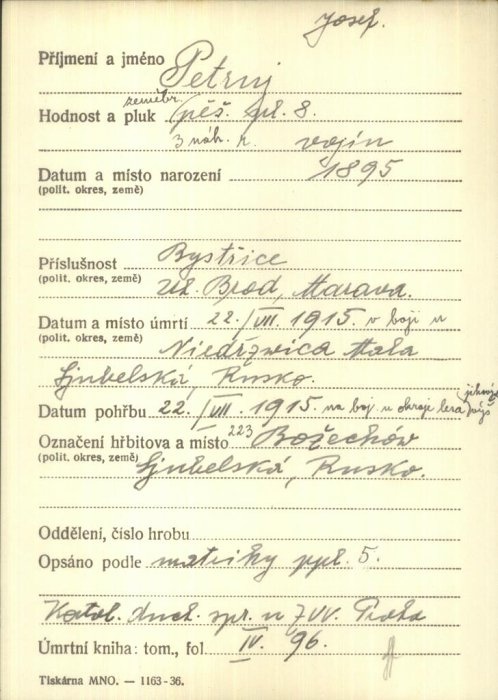 Josef.
Příjmení a jméno Petruj
zeměbr.
Hodnost a pluk pěš. pl. 8.
3 náh. r. vojín
Datum a místo narození 1895
(polit. okres, země)
Příslušnost Bystřice
(polit. okres, země) Uh. Brod, Morava.
Datum a místo úmrtí 22./VIII. 1915. v boji u
(polit. okres, země) Niedrzvica Mala
Ljubelská, Rusko.
Datum pohřbu 22./VIII. 1915. na boj. u okraje lesa
Označení hřbitova a místo 223 Božechów
(polit. okres, země) Ljubelská, Rusko.
Oddělení, číslo hrobu
Opsáno podle matriky ppl. 5.
Katol. duch. spr. u ZVV. Praha
Úmrtní kniha: tom., fol. IV. 96.
Tiskárna MNO. — 1163-36.